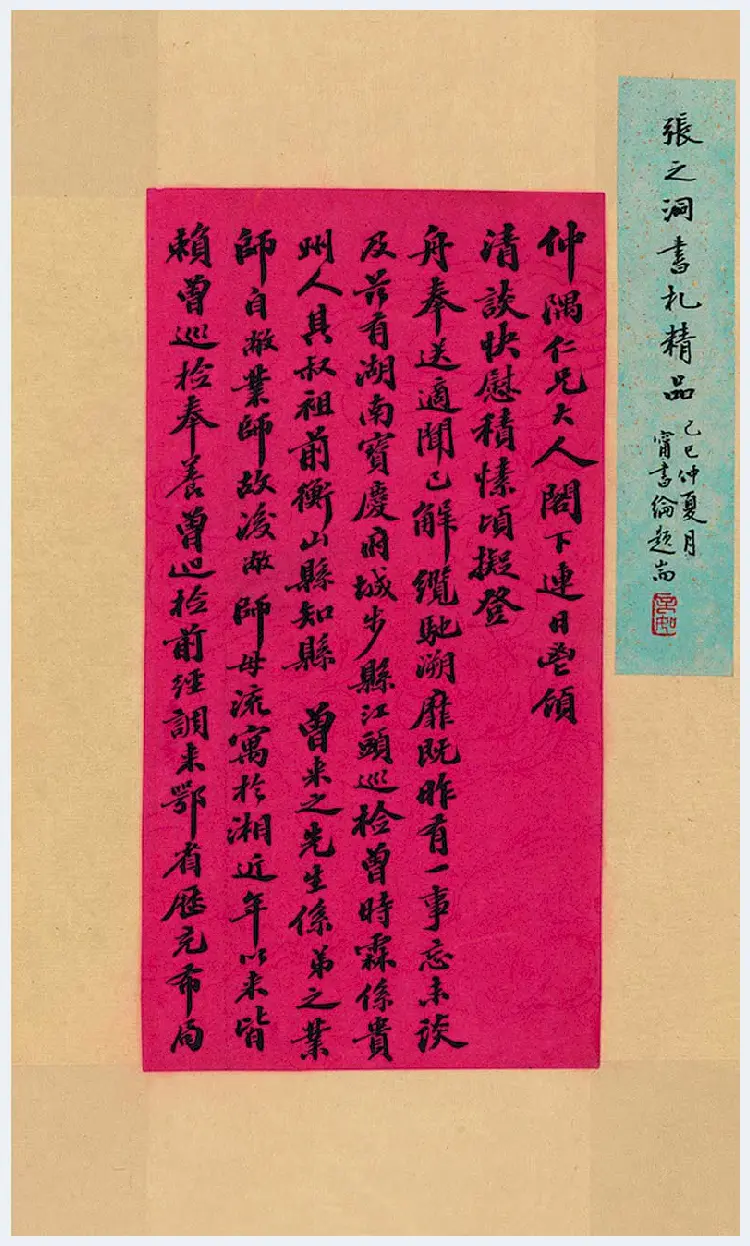 張之洞書札精品
己巳仲夏月
甯書綸題耑
仲隅仁兄大人閣下連日暢領
清談快慰積愫頃擬登
舟奉送適聞已解纜馳溯靡既昨有一事忘未談
及茲有湖南寶慶府城步縣江頭巡檢曾時霖係貴
州人其叔祖前衡山縣知縣 曾末之先生係弟之業
師自敝業師故後敝師母流寓於湘近年以來皆
賴曾巡檢奉養曾巡檢前經調來鄂省歷充布局